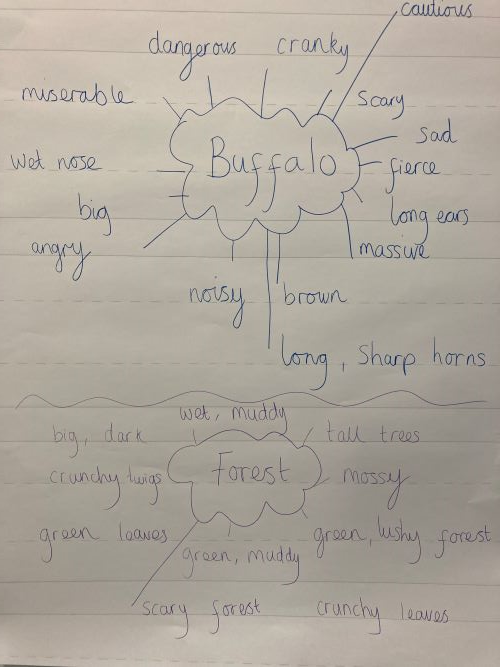 cautious
dangerous cranky
miserable
scary
Buffalo
sad
wet nose
fierce
big
long ears
angry
massive
noisy
brown
long, sharp horns
wet, muddy
big, dark
tall trees
Forest
crunchy twigs
mossy
green leaves
green, lushy forest
green, muddy
scary forest
crunchy leaves